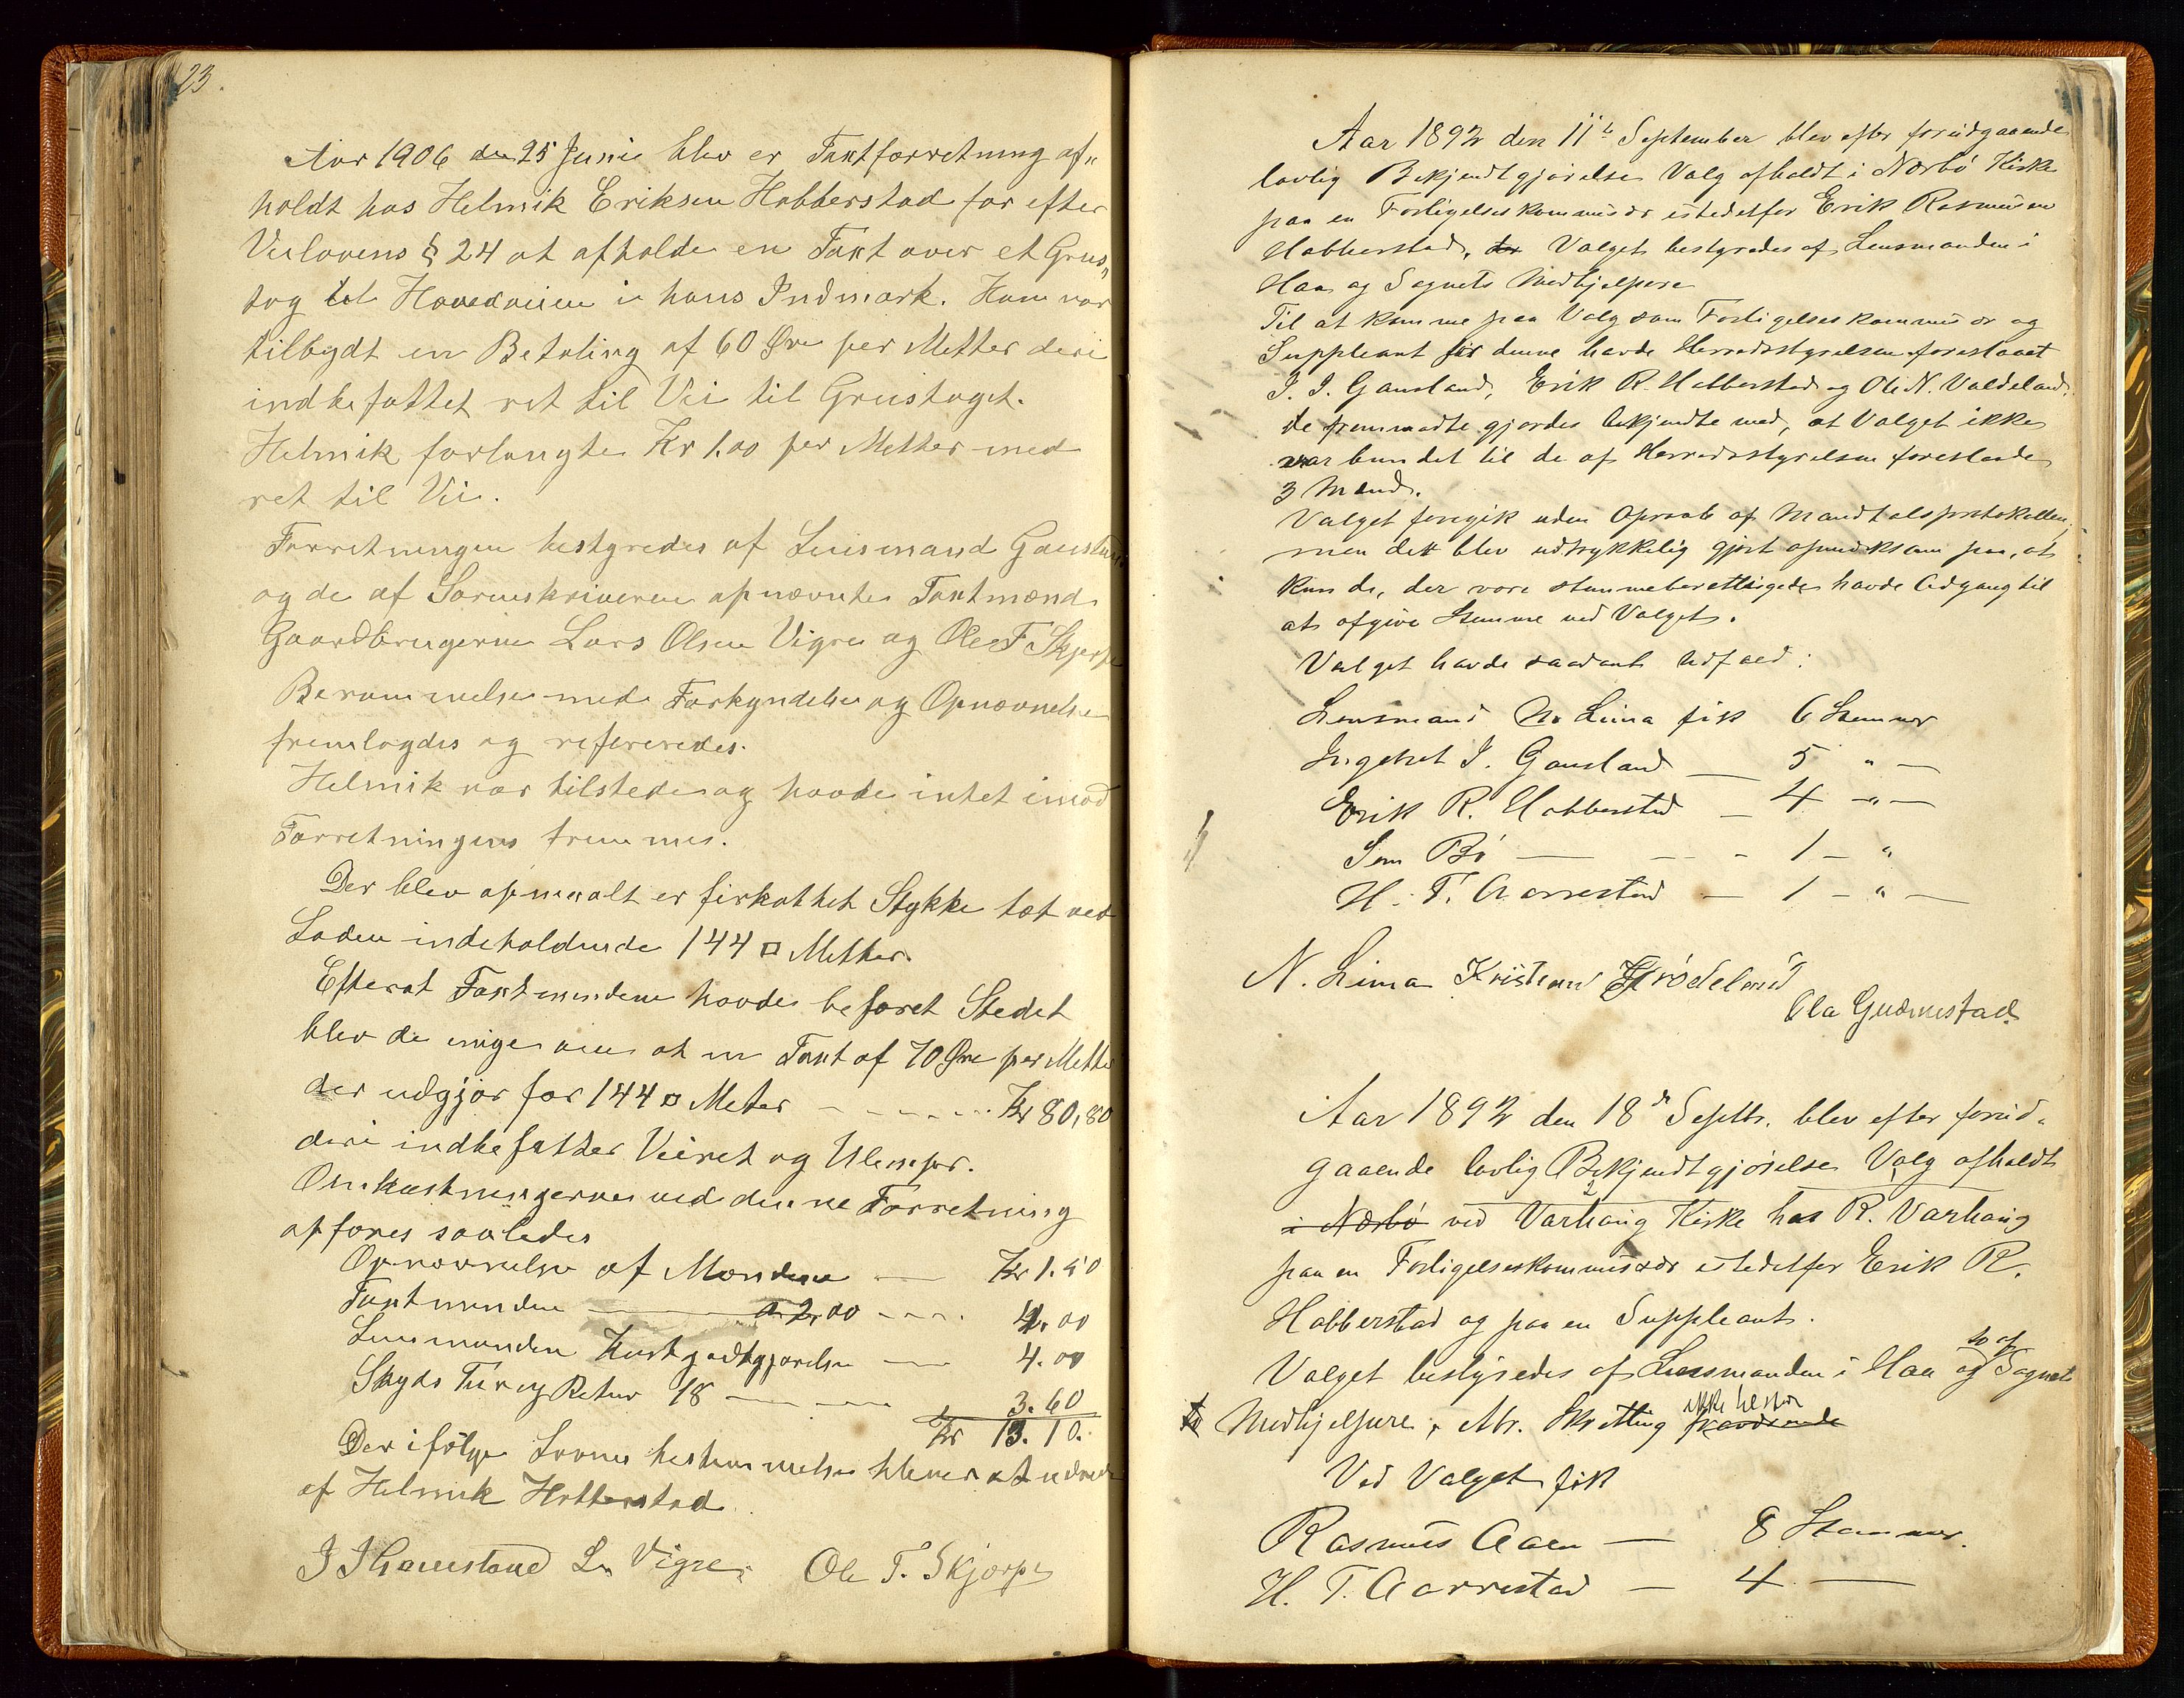 23.
Aar 1906 den 25 Junie blev er Taxtforretning af„
holdt hos Helmik Eriksen Hobberstad for efter
Veilovens § 24 at afholde en Taxt over et Grus„
tag til Hovedveien i hans Indmark. Ham var
tilbydt en Betaling af 60 Øre per Metter deri
indbefattet ret til Vei til Grustaget.
Helmik forlangte Kr 1.00 per Metter med
ret til Vei.
Forretningen bestyredes af Lensmand Gausland
og de af Sorenskriveren opnævnte Taxtmænd
Gaardbrugerne Lars Olsen Vigre og Ole T Skjerpe
Berammelse med Forkyndelse og Opnævnelse
fremlagdes og refereredes.
Helmik var tilstede og havde intet imod
Forretningens fremmes.
Der blev opmaalt er firkattet Stykke tæt ved
Laden indeholdende 144 □ Metter.
Efterat Taxtmendene havde befaret Stedet
blev de enige om at en Taxt af 70 Øre per Metter
der udgjør for 144 □ Meter Kr 80,80
deri indbefatter Veiret og Ulemper.
Omkostningerne ved denne Forretning
opføres saaledes
Opnævnelse af Mændene — Kr 1.50
Taxtmendene — a 2,00 — 4.00
Lensmanden Kostgodtgjørelse — 4.00
Skyds Tur og Retur 18 — 3.60
Kr 13.10.
Der ifølge Lovens bestemmelse bliver at udrede
af Helmik Hobberstad
I I Gausland L. Vigre Ole T. Skjærpe
Aar 1892 den 11te September blev efter forudgaaende
lovlig Bekjendtgjørelse Valg afholdt i Nærbø Kirke
paa en Forligelseskommissær istedetfor Erik Rasmussen
Hobberstad, der Valget bestyredes af Lensmanden i
Haa og Sognets Medhjelpere
Til at komme paa Valg som Forligelseskommissær og
Suppleant for denne havde Herredsstyrelsen foreslaaet
I. I. Gausland, Erik R. Hobberstad og Ole N. Valdeland.
de fremmødte gjordes bekjendte med, at Valget ikke
var bundet til de af Herredsstyrelsen foreslaade
3 Mænd.
Valget foregik uden Opraab af Mandtalsprotokollen,
men det blev udtrykkelig gjort opmerksom paa, at
kun de, der vare stemmeberettigede havde Adgang til
at afgive Stemme ved Valget.
Valget havde saadant Udfald:
Lensmand N. Lima fik 6 Stemmer
Ingebret I. Gausland — 5 „ —
Erik R. Hobberstad — 4 „ —
Sem Bø — 1 — „
H. T. Aarrestad — 1 — „ —
N. Lima Kristian Frødeland
Ola Gudmestad
Aar 1892 den 18de Septbr. blev efter forud„
gaaende lovlig Bekjendtgjørelse Valg afholdt
i Nærbø ved Varhaug Kirke hos R. Varhaug
paa en Forligelseskommissær istedetfor Erik R.
Hobberstad og paa en Suppleant.
Valget bestyredes af Lensmanden i Haa og to af Sognets
Medhjelpere, Mr. Skretting ikke tilstede
Ved Valget fik
Rasmus Aaen — 8 Stemmer.
H. T. Aarrestad — 4 —